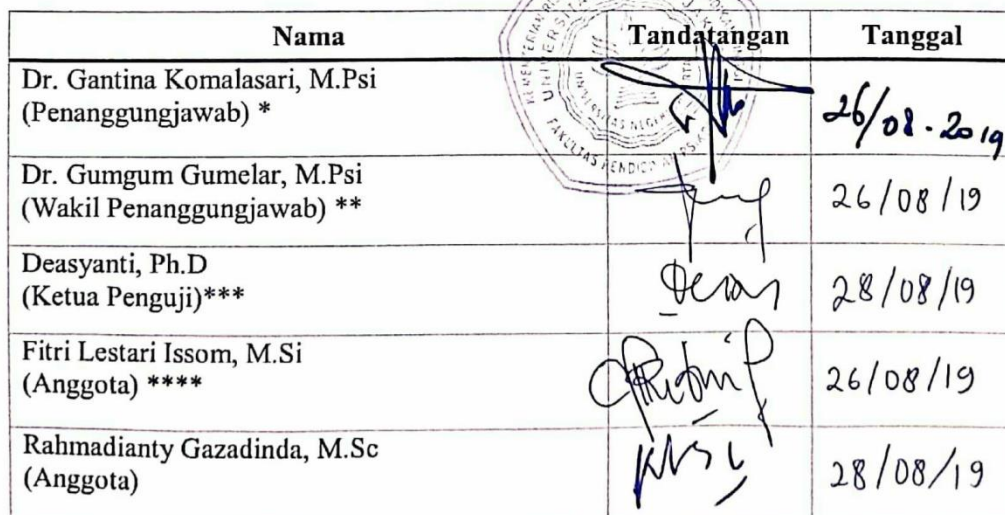 Nama Tandatangan Tanggal
Dr. Gantina Komalasari, M.Psi
(Penanggungjawab) * 26/08-2019
Dr. Gumgum Gumelar, M.Psi
(Wakil Penanggungjawab) ** 26/08/19
Deasyanti, Ph.D
(Ketua Penguji)*** 28/08/19
Fitri Lestari Issom, M.Si
(Anggota) **** 26/08/19
Rahmadianty Gazadinda, M.Sc
(Anggota) 28/08/19